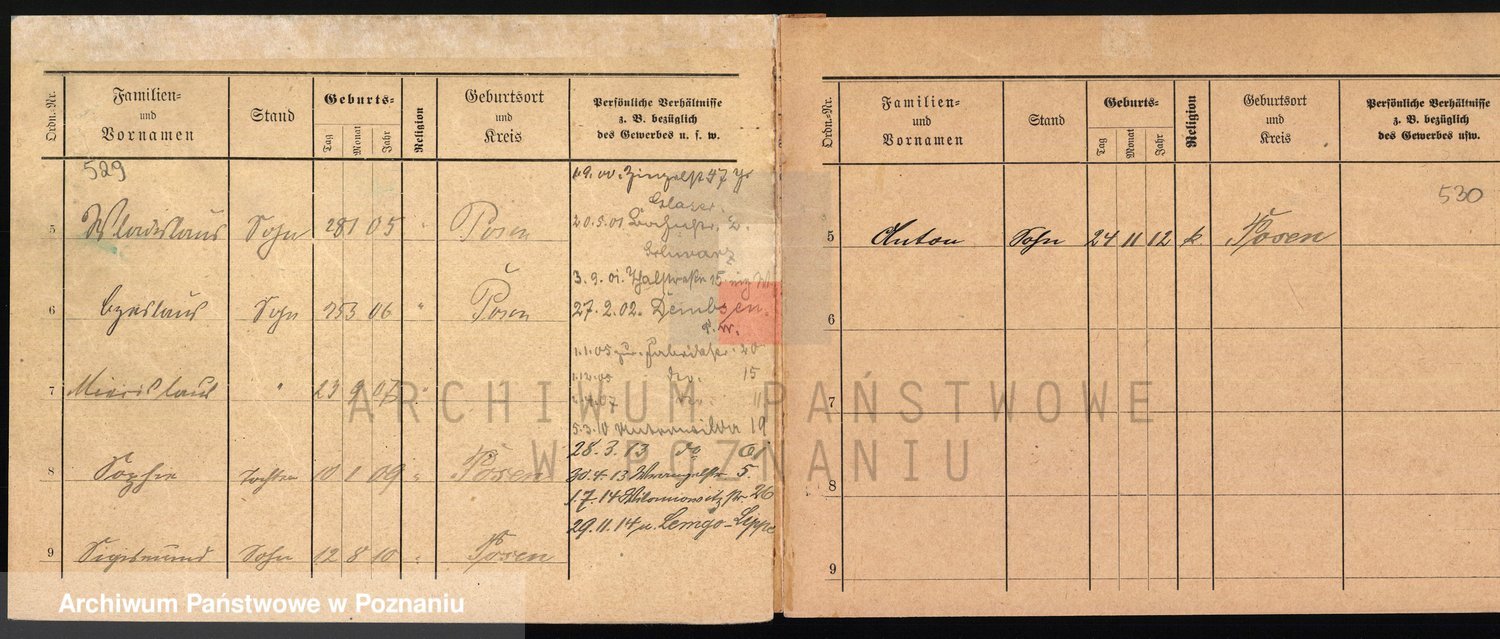 Ordn.-Nr.
Familien-
und
Vornamen
Stand
Geburts-
Tag
Monat
Jahr
Religion
Geburtsort
und
Kreis
Persönliche Verhältnisse
z. B. bezüglich
des Gewerbes u. s. w.
529
5 Wladislaus Sohn 28 1 05 " Posen
6 Czeslaus Sohn 25 3 06 " Posen
7 " 23 9 07 "
8 Sophie Tochter 10 1 09 " Posen
9 Sigismund Sohn 12 8 10 " Posen
Glaser.
20.5.01 2.
Schwarz
3.9.01. Thalstraße 15
27.2.02. Dembsen.
1.1.05 20
15
11
5.3.10 19
28.3.13 do
30.4.13 Wrangelstr 5.
1.7.14 26
29.11.14 n. Lemgo-Lippe
Ordn.-Nr.
Familien-
und
Vornamen
Stand
Geburts-
Tag
Monat
Jahr
Religion
Geburtsort
und
Kreis
Persönliche Verhältnisse
z. B. bezüglich
des Gewerbes usw.
530
5 Anton Sohn 24 11 12 k Posen
6
7
8
9
ARCHIWUM PAŃSTWOWE
W POZNANIU
Archiwum Państwowe w Poznaniu